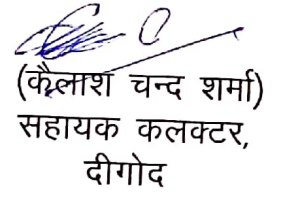 (कैलाश चन्द शर्मा)
सहायक कलक्टर,
दीगोद